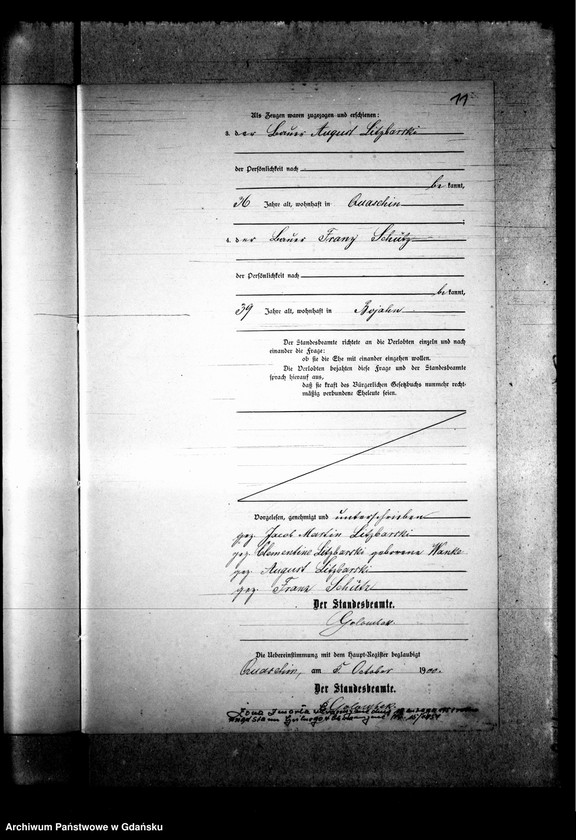 11
Als Zeugen waren zugezogen und erschienen:
1. der Bauer August Litzbarski
der Persönlichkeit nach
be kannt,
36 Jahre alt, wohnhaft in Quaschin
;
2. der Bauer Franz Schütz
der Persönlichkeit nach
be kannt,
39 Jahre alt, wohnhaft in Bojahn
Der Standesbeamte richtete an die Verlobten einzeln und nach
einander die Frage:
ob sie die Ehe mit einander eingehen wollen.
Die Verlobten bejahten diese Frage und der Standesbeamte
sprach hierauf aus,
daß sie kraft des Bürgerlichen Gesetzbuchs nunmehr recht-
mäßig verbundene Eheleute seien.
Vorgelesen, genehmigt und unterschrieben
gez. Jacob Martin Litzbarski
gez. Clementine Litzbarski geborene Wanke
gez. August Litzbarski
gez. Franz Schütz
Der Standesbeamte.
Golombek
Die Uebereinstimmung mit dem Haupt-Register beglaubigt
Quaschin, am 5. October 1900.
Der Standesbeamte.
Golombek
Żona zmarła
Archiwum Państwowe w Gdańsku